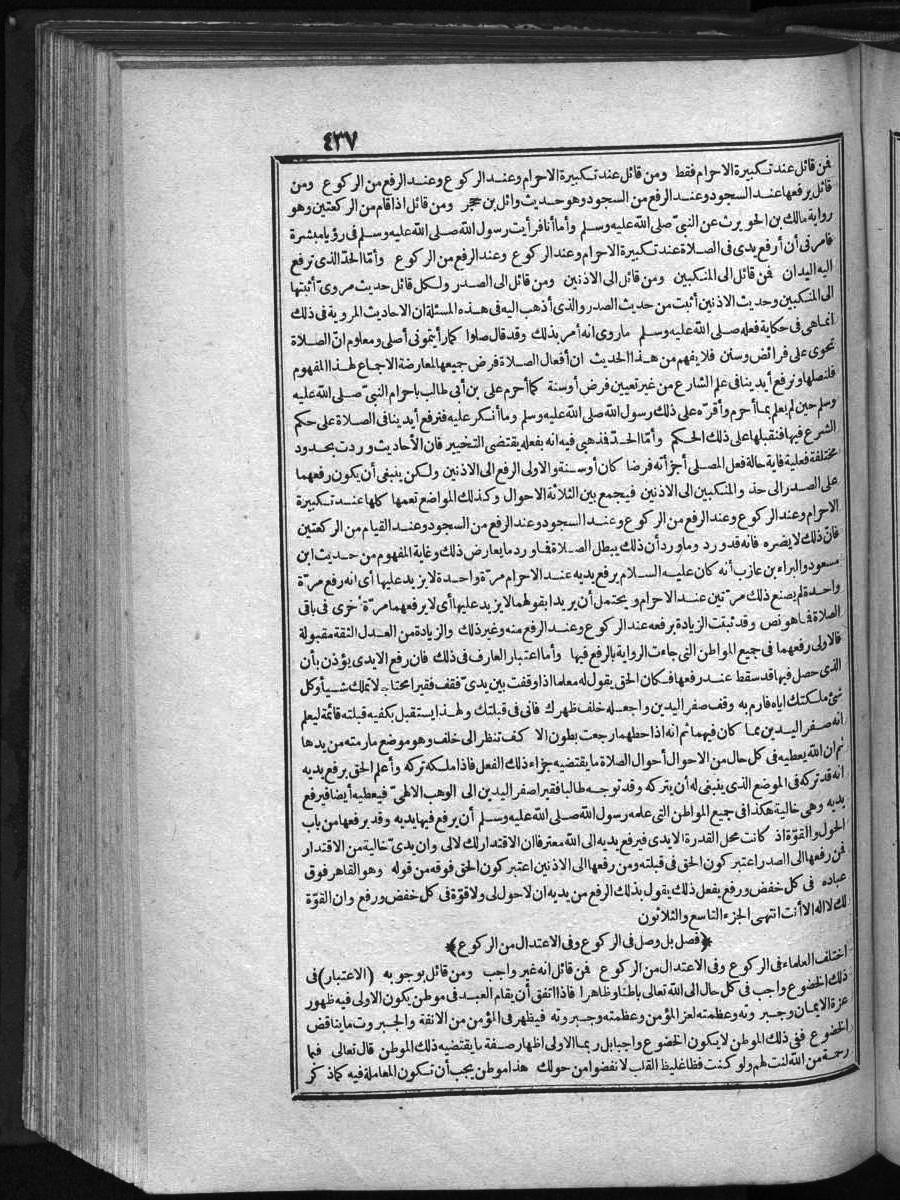 ٤٣٧
فمن قائل عند تكبيرة الاحرام فقط ومن قائل عند تكبيرة الاحرام وعند الركوع وعند الرفع من الركوع ومن
قائل يرفعها عند السجود وعند الرفع من السجود وهو حديث وائل بن حجر ومن قائل اذا قام من الركعتين وهو
رواية مالك بن الحويرث عن النبي صلى الله عليه وسلم وأما أنا فرأيت رسول الله صلى الله عليه وسلم فى رؤيا مبشرة
فامرنى أن أرفع يدى فى الصلاة عند تكبيرة الاحرام وعند الركوع وعند الرفع من الركوع وأمّا الحدّ الذى ترفع
اليه اليدان فمن قائل الى المنكبين ومن قائل الى الاذنين ومن قائل الى الصدر ولكل قائل حديث مروىّ أثبتها
الى المنكبين وحديث الاذنين أثبت من حديث الصدر والذى أذهب اليه فى هذه المسئلة ان الاحاديث المروية فى ذلك
انماهى فى حكاية فعله صلى الله عليه وسلم ماروى انه أمر بذلك وقد قال صلوا كما رأيتمونى أصلى ومعلوم انّ الصلاة
تحوى على فرائض وسنن فلا يفهم من هذا الحديث ان أفعال الصلاة فرض جميعها لمعارضة الاجماع لهذا المفهوم
فلنصلها ونرفع أيدينا فى علم الشارع من غير تعيين فرض أو سنة كما أحرم على بن أبى طالب باحرام النبىّ صلى الله عليه
وسلم حين لم يعلم بما أحرم وأقرّه على ذلك رسول الله صلى الله عليه وسلم وما أنكر عليه فنرفع أيدينا فى الصلاة على حكم
الشرع فيها فنقبلها على ذلك الحكم وأمّا الحدّ فذهبى فيه انه بفعله يقتضى التخيير فان الأحاديث وردت بحدود
مختلفة فعلية فاية حالة فعل المصلى أجزأته فرضا كان أو سنة والاولى الرفع الى الاذنين ولكن ينبغى أن يكون رفعهما
على الصدر الى حذو المنكبين الى الاذنين فيجمع بين الثلاثة الاحوال وكذلك المواضع تعمها كلها عند تكبيرة
الاحرام وعند الركوع وعند الرفع من الركوع وعند السجود وعند الرفع من السجود وعند القيام من الركعتين
فانّ ذلك لا يضره فانه قد ورد وما ورد أن ذلك يبطل الصلاة فاورد ما يعارض ذلك وغاية المفهوم من حديث ابن
مسعود والبراء بن عازب أنه كان عليه السلام يرفع يديه عند الاحرام مرّة واحدة لا يزيد عليها أى انه رفع مرّة
واحدة لم يصنع ذلك مرّتين عند الاحرام ويحتمل أن يريد ابقولهما لا يزيد عليها أى لا يرفعهما مرّة أخرى فى باقى
الصلاة فاهو نص وقد ثبتت الزيادة برفعه عند الركوع وعند الرفع منه وغير ذلك والزيادة من العدل الثقة مقبولة
فالاولى رفعهما فى جميع المواطن التى جاءت الرواية بالرفع فيها وأما اعتبار العارف فى ذلك فان رفع الايدى يؤذن بأن
الذى حصل فيها قد سقط عند رفعها فكان الحق يقول له معلما اذا وقفت بين يدىّ فقف فقيرا محتاجا لا تملك شيأ وكل
شئ ملكتك اياه فارم به وقف صفر اليدين واجعله خلف ظهرك فانى فى قبلتك ولهذا يستقبل بكفيه قبلته قائمة ليعلم
انه صفر اليدين مما كان فيهما ثم انه اذا حطهما رجعت بطون الاكف تنظر الى خلف وهو موضع مارمته من يدها
ثم ان الله يعطيه فى كل حال من الاحوال أحوال الصلاة ما يقتضيه جزاء ذلك الفعل فاذا ملكه تركه وأعلم الحق برفع يديه
انه قد تركه فى الموضع الذى ينبغى له أن يتركه وقد توجه طالبا فقيرا صفر اليدين الى الوهب الالهىّ فيعطيه أيضا فيرفع
يديه وهى خالية هكذا فى جميع المواطن التى علمه رسول الله صلى الله عليه وسلم أن يرفع فيها يديه وقد يرفعها من باب
الحول والقوّة اذ كانت محل القدرة الايدى فيرفع يديه الى الله معترفا ان الاقتدار لك لالى وان يدىّ خالية من الاقتدار
فمن رفعها الى الصدر اعتبر كون الحق فى قبلته ومن رفعها الى الاذنين اعتبر كون الحق فوقه من قوله وهو القاهر فوق
عباده فى كل خفض ورفع يفعل ذلك يقول بذلك الرفع من يديه ان لا حول لى ولا قوّة فى كل خفض ورفع وان القوّة
لك لا اله الا أنت انتهى الجزء التاسع والثلاثون
﴿فصل بل وصل فى الركوع وفى الاعتدال من الركوع﴾
اختلف العلماء فى الركوع وفى الاعتدال من الركوع فمن قائل انه غير واجب ومن قائل بوجوبه (الاعتبار) فى
ذلك الخضوع واجب فى كل حال الى الله تعالى باطنا وظاهرا فاذا اتفق أن يقام العبد فى موطن يكون الاولى فيه ظهور
عزة الايمان وجبروته وعظمته لعز المؤمن وعظمته وجبروته فيظهر فى المؤمن من الانفة والجبروت ما يناقض
الخضوع ففى ذلك الموطن لا يكون الخضوع واجبا بل ربما الاولى اظهار صفة ما يقتضيه ذلك الموطن قال تعالى فبما
رحمة من الله لنت لهم ولو كنت فظا غليظ القلب لانفضوا من حولك هذا موطن يجب أن تكون المعاملة فيه كما ذكر